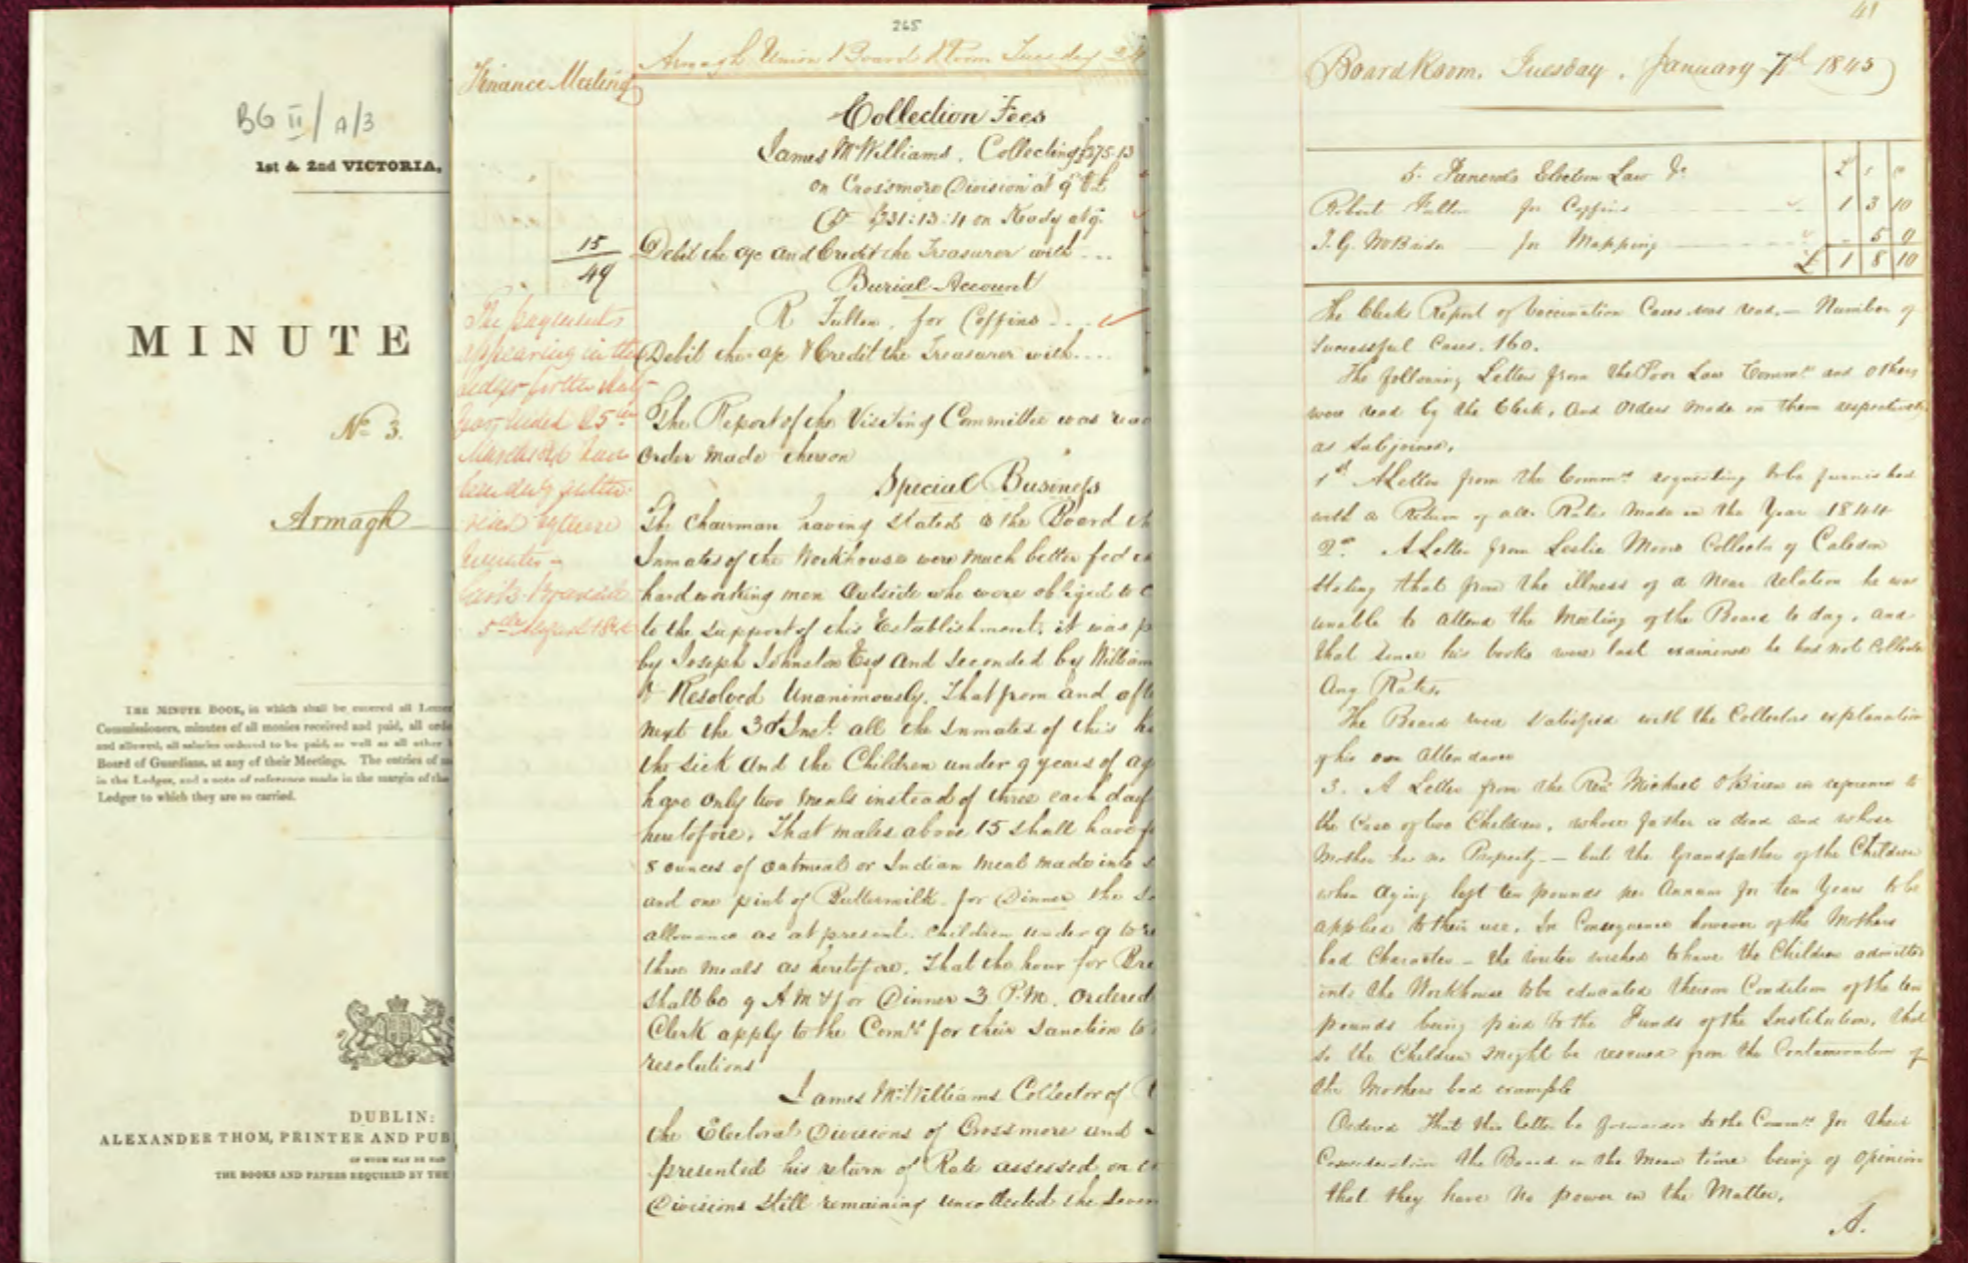 BG II/A/3
1st & 2nd VICTORIA,
MINUTE
No 3.
Armagh
THE MINUTE BOOK, in which shall be entered all
Commissioners, minutes of all monies received and paid, all
and allowed, all salaries ordered to be paid, as well as all other
Board of Guardians, at any of their Meetings. The entries of
in the Ledger, and a note of reference made in the margin of the
Ledger to which they are so carried.
DUBLIN:
ALEXANDER THOM, PRINTER AND PUB
OF WHOM MAY BE HAD
THE BOOKS AND PAPERS REQUIRED BY THE
265
Armagh Union Board Room Tuesday 24
Finance Meeting
Collection Fees
James McWilliams. Collecting £375-13
on Crossmore Division at 9d
Do £31:13:4 on Keady at 9d
15
49
Debit the a/c and Credit the Treasurer with ...
Burial Account
R Fulton, for Coffins ...
Debit the a/c & Credit the Treasurer with ...
The payments
appearing in the
Ledger for the half
year ended 25th
The Report of the Visiting Committee was read
order made thereon
Special Business
The Chairman having stated to the Board th
Inmates of the Workhouse were much better fed
hard working men Outside who were obliged to c
to the support of this Establishment, it was p
by Joseph Johnston Esq and seconded by William
& Resolved Unanimously. That from and aft
next the 30th Inst. all the Inmates of this h
the sick and the Children under 9 years of ag
have only two meals instead of three each day
heretofore. That males above 15 shall have
8 ounces of oatmeal or Indian meal made into s
and one pint of Buttermilk for Dinner the
allowance as at present. Children under 9 to
three meals as heretofore. That the hour for Bre
shall be 9 A.M & for Dinner 3 P.M. Ordered
Clerk apply to the Comrs for their sanction to
resolutions
James McWilliams Collector of
the Electoral Divisions of Crossmore and
presented his return of Rate assessed on
Divisions still remaining uncollected the
41
Board Room, Tuesday, January 7th 1845
5. Funerals Election Law &c £ s
Robert Fulton for Coffins 1 3 10
J. G. McBride for Mapping - 5 0
£ 1 8 10
The Clerks Report of Vaccination Cases was read. — Number of
Successful Cases. 160.
The following Letters from the Poor Law Commrs and others
were read by the Clerk, and orders made on them respectively
as subjoined.
1st A Letter from the Commrs requesting to be furnished
with a Return of all Rates made in the Year 1844
2nd A Letter from Leslie Moore Collector of Caledon
Stating that from the illness of a near relation he was
unable to attend the Meeting of the Board to day, and
that since his books were last examined he has not Collected
any Rates.
The Board were satisfied with the Collectors explanation
of his non attendance
3. A Letter from the Revd Michael O'Brien in reference to
the Case of two Children, whose father is dead and whose
Mother has no Property — but the Grandfather of the Children
when dying left ten pounds per Annum for ten Years to be
applied to their use. In Consequence however of the Mothers
bad Character — the writer wished to have the Children admitted
into the Workhouse to be educated thereon Condition of the ten
pounds being paid to the Funds of the Institution, that
so the Children might be rescued from the Contamination of
the Mothers bad example
Ordered That this letter be forwarded to the Commrs for their
Consideration the Board in the mean time being of opinion
that they have no power in the Matter.